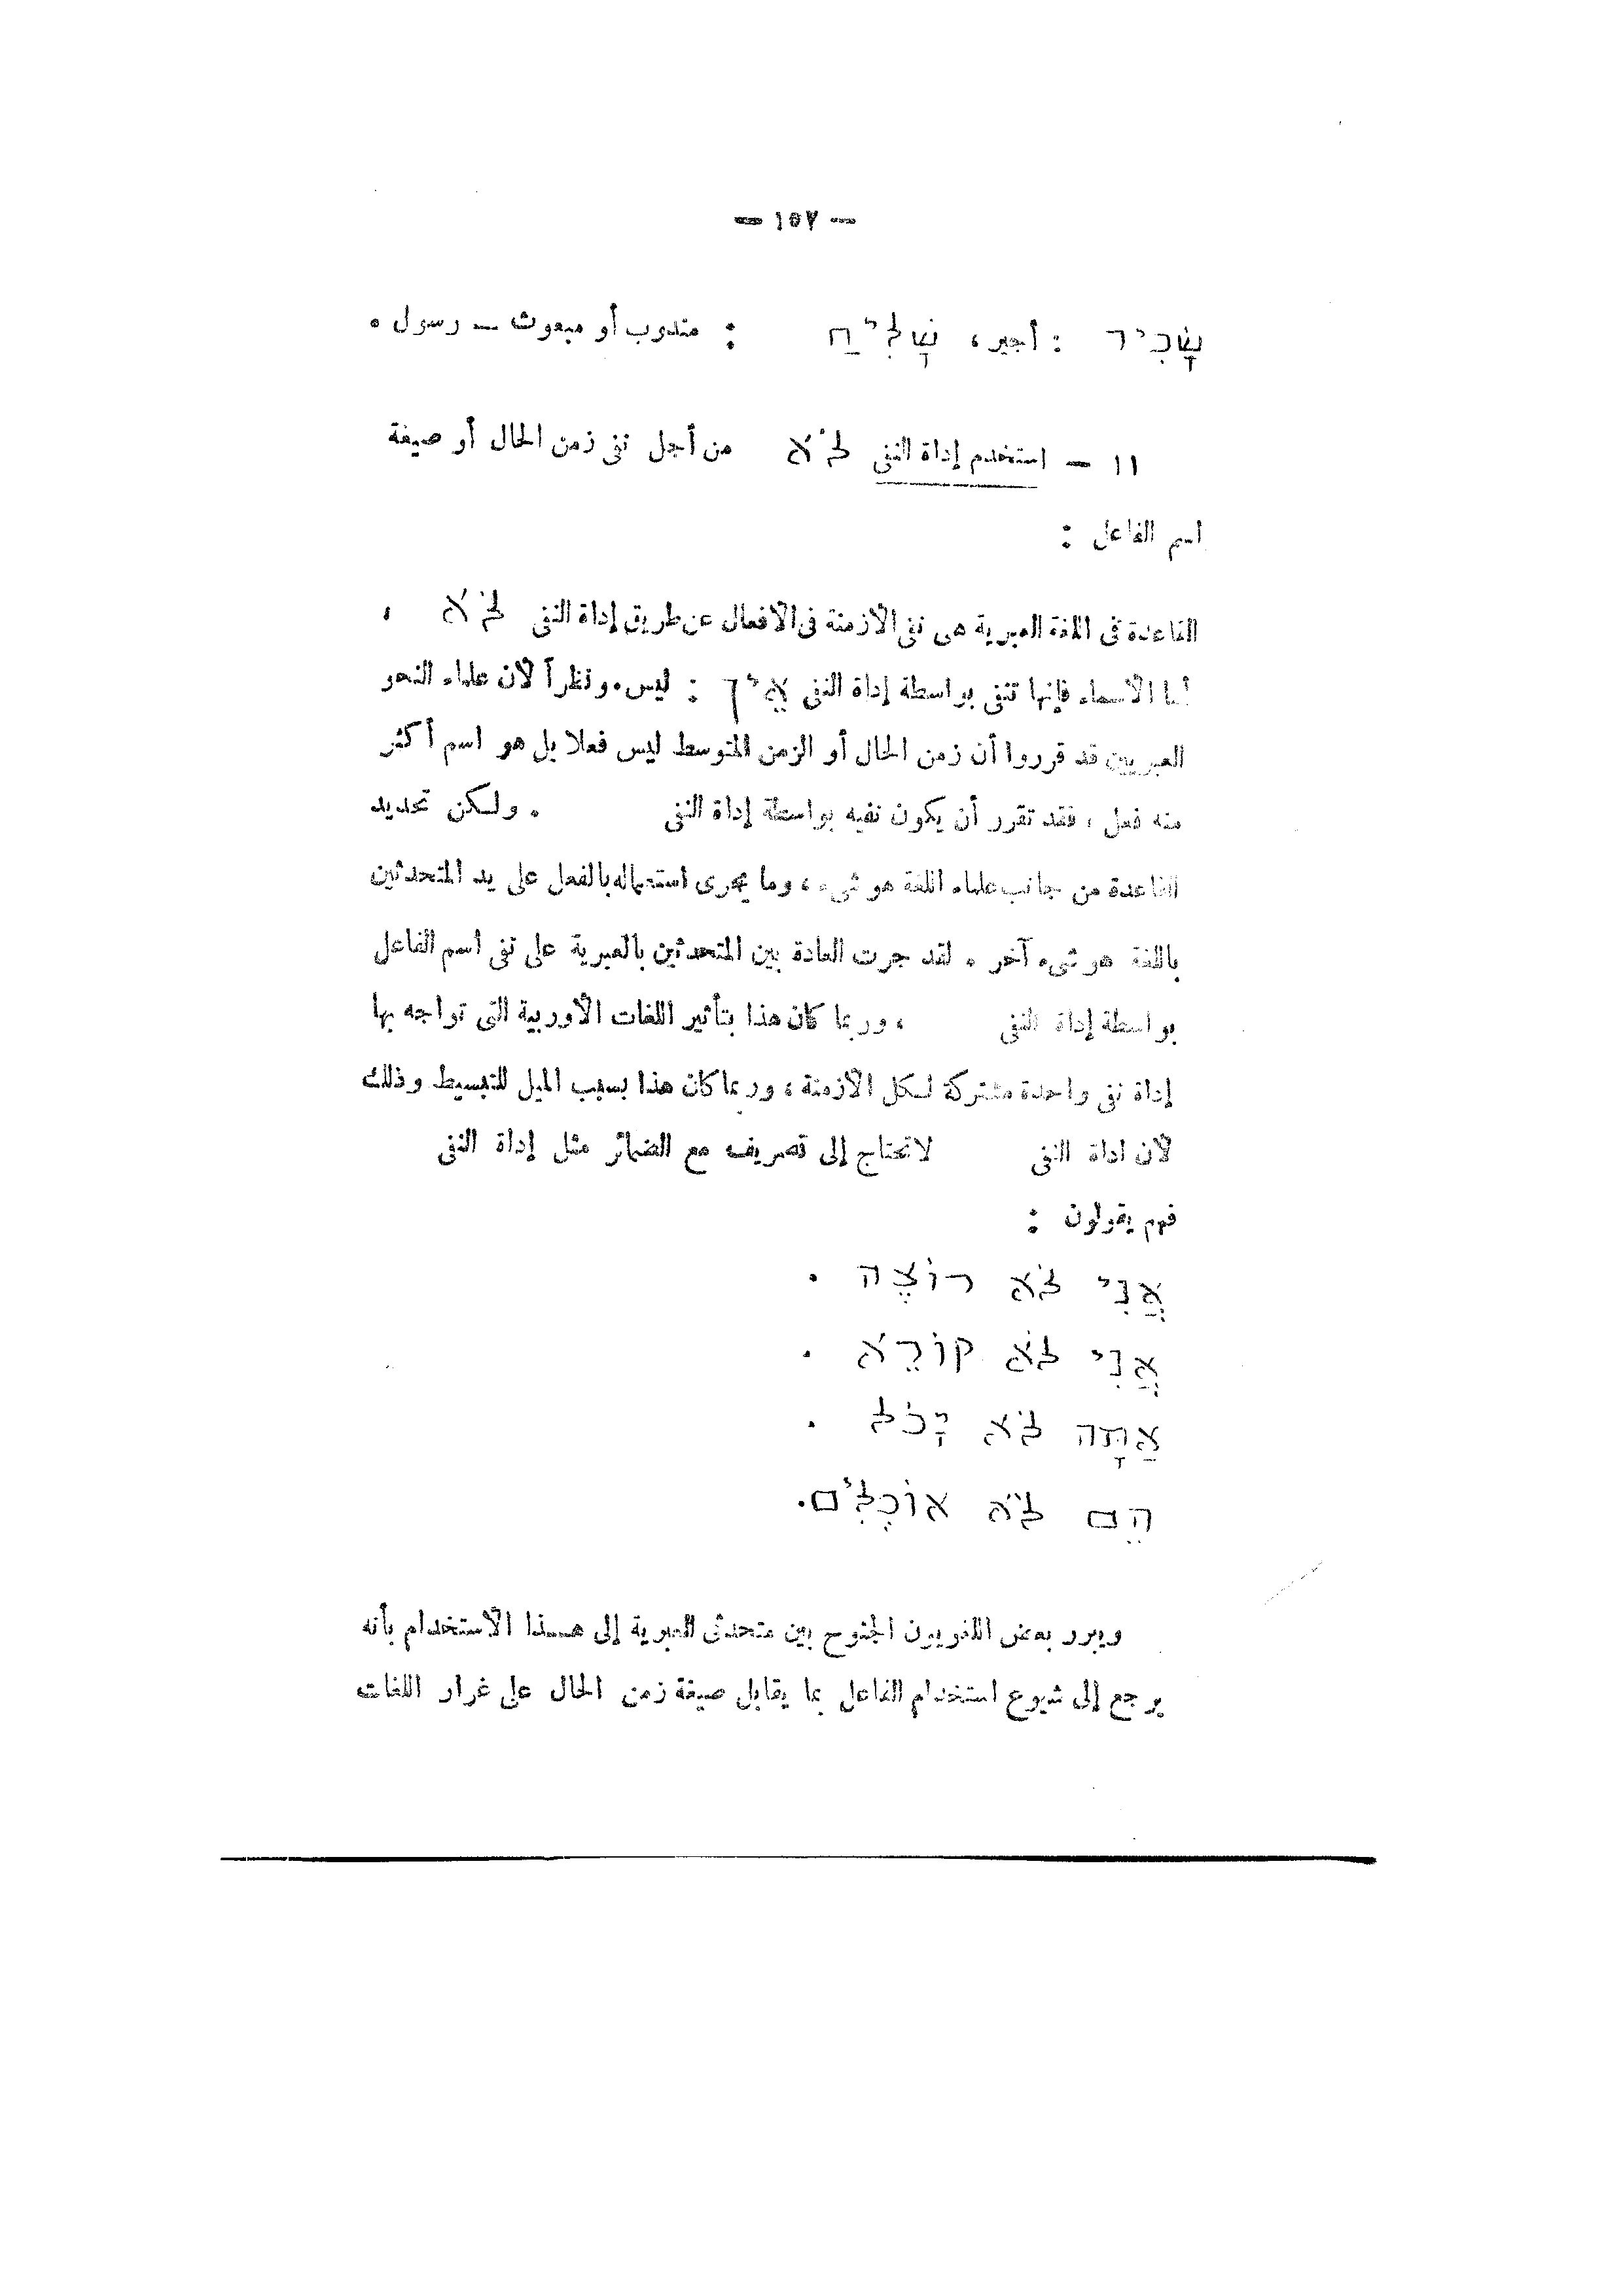 — ١٥٧ —
שָׂכִיר : أجير ، שָׁלִיחַ : مندوب أو مبعوث — رسول .
١١ — استخدم إداة النفى לֹא من أجل نفى زمن الحال أو صيغة
اسم الفاعل :
القاعدة فى اللغة العبرية هى نفى الأزمنة فى الأفعال عن طريق إداة النفى לֹא ،
أما الأسماء فإنها تنفى بواسطة إداة النفى אֵין : ليس . ونظراً لأن علماء النحو
العبريين قد قرروا أن زمن الحال أو الزمن المتوسط ليس فعلا بل هو اسم أكثر
منه فعل ، فقد تقرر أن يكون نفيه بواسطة إداة النفى . ولكن تحديد
القاعدة من جانب علماء اللغة هو شىء ، وما يجرى استعماله بالفعل على يد المتحدثين
باللغة هو شىء آخر . لقد جرت العادة بين المتحدثين بالعبرية على نفى اسم الفاعل
بواسطة إداة النفى ، وربما كان هذا بتأثير اللغات الأوربية التى تواجه بها
إداة نفى واحدة مشتركة لكل الأزمنة ، وربما كان هذا بسبب الميل للتبسيط وذلك
لأن اداة النفى لاتحتاج إلى تصريف مع الضمائر مثل إداة النفى
فهم يقولون :
אֲנִי לֹא רוֹצֶה .
אֲנִי לֹא קוֹרֵא .
אַתָּה לֹא יָכֹל .
הֵם לֹא אוֹכְלִים.
ويبرر بعض اللغويون الجنوح بين متحدثى العبرية إلى هـــذا الاستخدام بأنه
يرجع إلى شيوع استخدام الفاعل بما يقابل صيغة زمن الحال على غرار اللغات